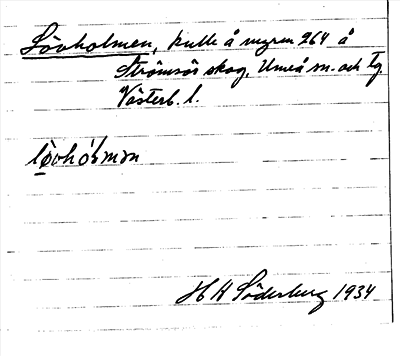 Lövholmen, kulle å myren 264 å
Strömsör skog, Umeå sn. och tg.
Västerb. l.
lövhólmən
H H Söderberg 1934